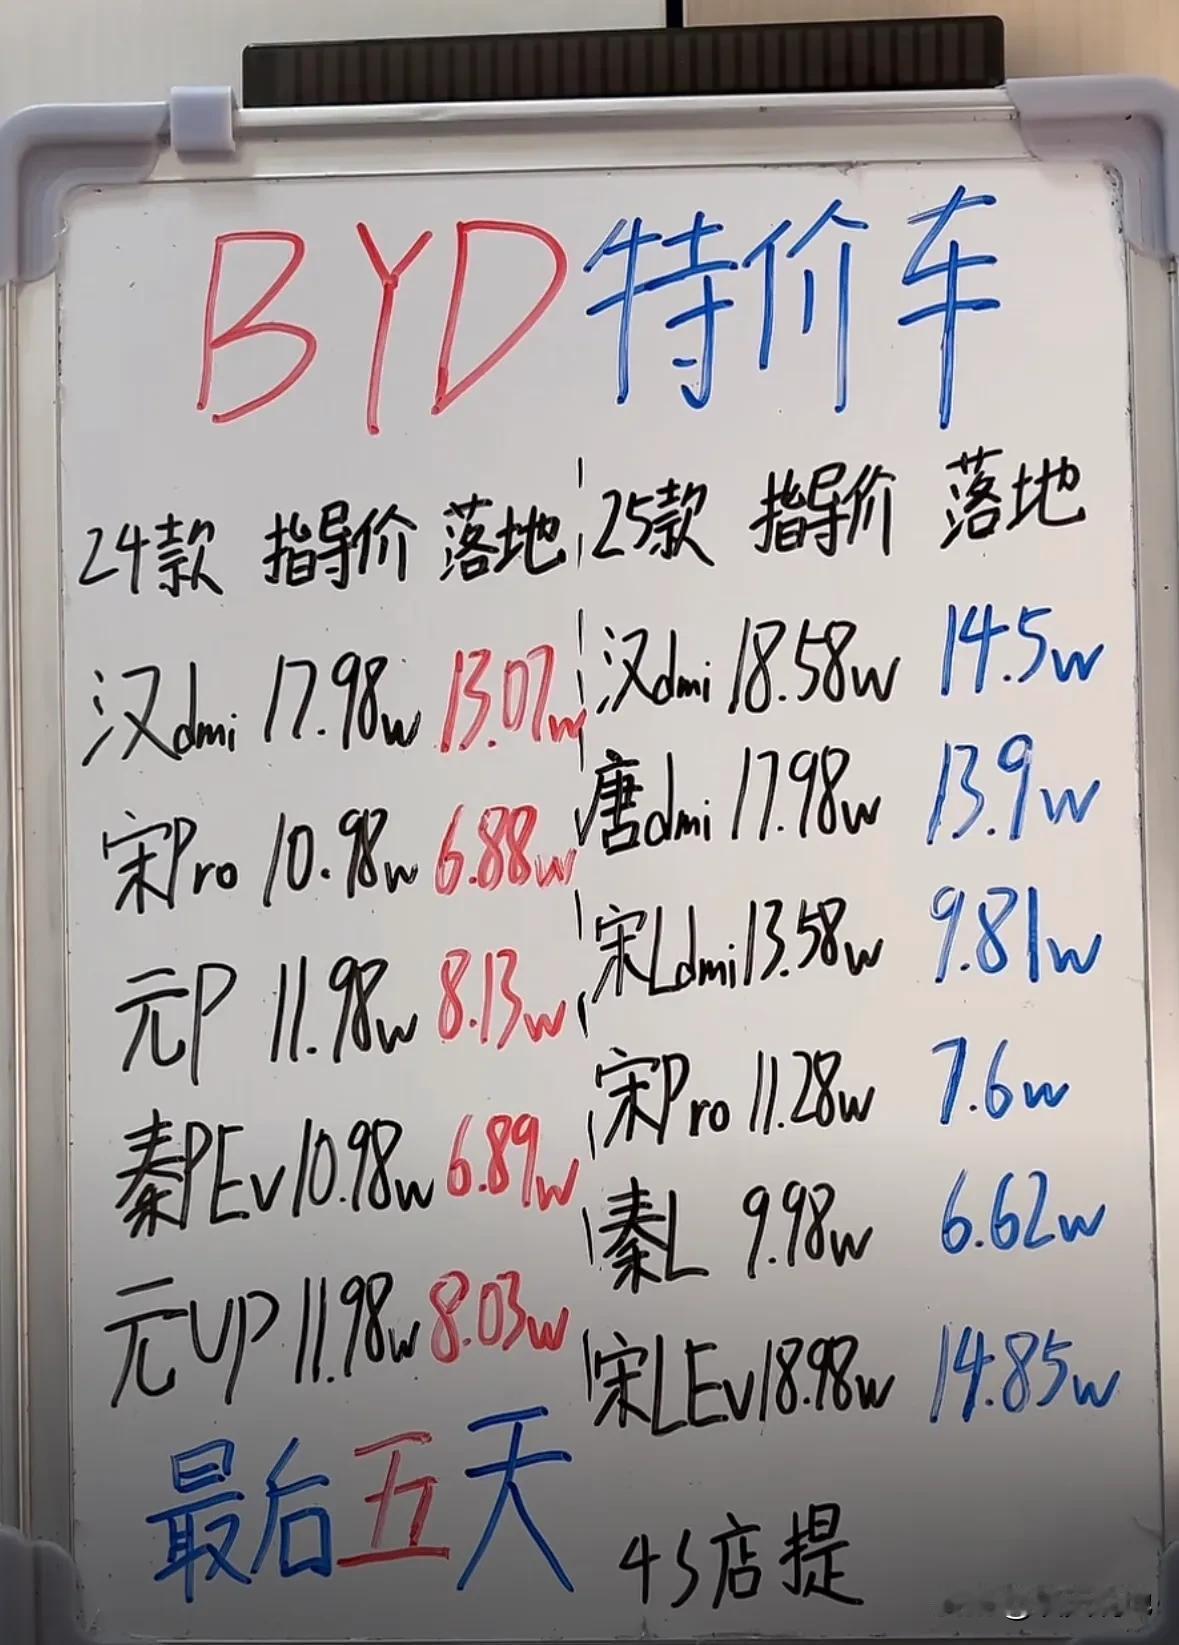 BYD特价车
24款 指导价 落地
汉dmi 17.98w 13.07w
宋Pro 10.98w 6.88w
元P 11.98w 8.13w
秦PEv 10.98w 6.89w
元UP 11.98w 8.03w
25款 指导价 落地
汉dmi 18.58w 14.5w
唐dmi 17.98w 13.9w
宋Ldmi 13.58w 9.81w
宋Pro 11.28w 7.6w
秦L 9.98w 6.62w
宋LEv 18.98w 14.85w
最后五天
4S店提